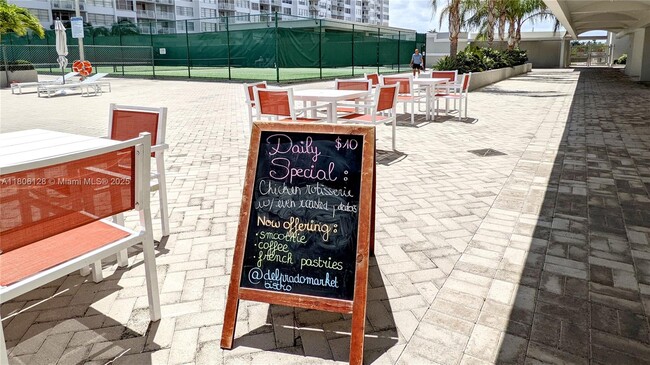 Daily $10
Special :
Chicken rotisserie
w/ oven roasted potatoes
Now offering :
• smoothie
• coffee
• french pastries
@delpradomarket
bistro
A11808128 Miami MLS® 2025